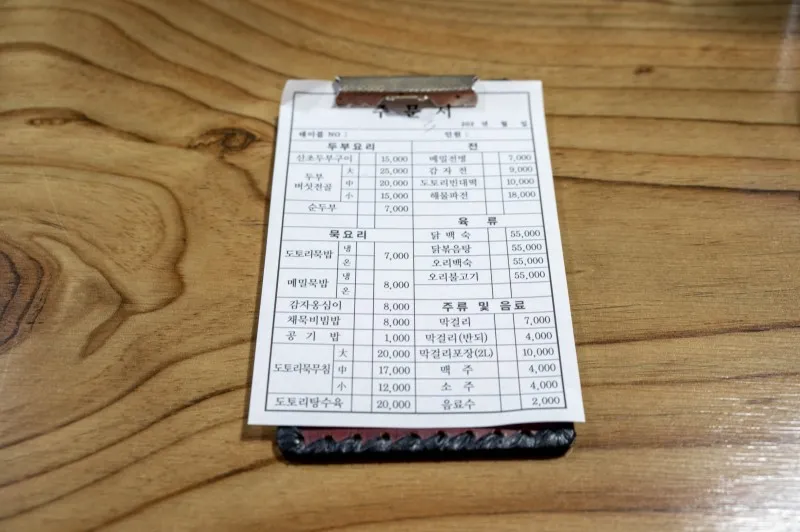 주문서
202 년 월 일
테이블 NO : 인원 :
두부요리
산초두부구이 15,000
두부버섯전골 大 25,000
中 20,000
小 15,000
순두부 7,000
묵요리
도토리묵밥 냉 온 7,000
메밀묵밥 냉 온 8,000
감자옹심이 8,000
채묵비빔밥 8,000
공기밥 1,000
도토리묵무침 大 20,000
中 17,000
小 12,000
도토리탕수육 20,000
전
메밀전병 7,000
감자전 9,000
도토리빈대떡 10,000
해물파전 18,000
육류
닭백숙 55,000
닭볶음탕 55,000
오리백숙 55,000
오리불고기 55,000
주류 및 음료
막걸리 7,000
막걸리(반되) 4,000
막걸리포장(2L) 10,000
맥주 4,000
소주 4,000
음료수 2,000